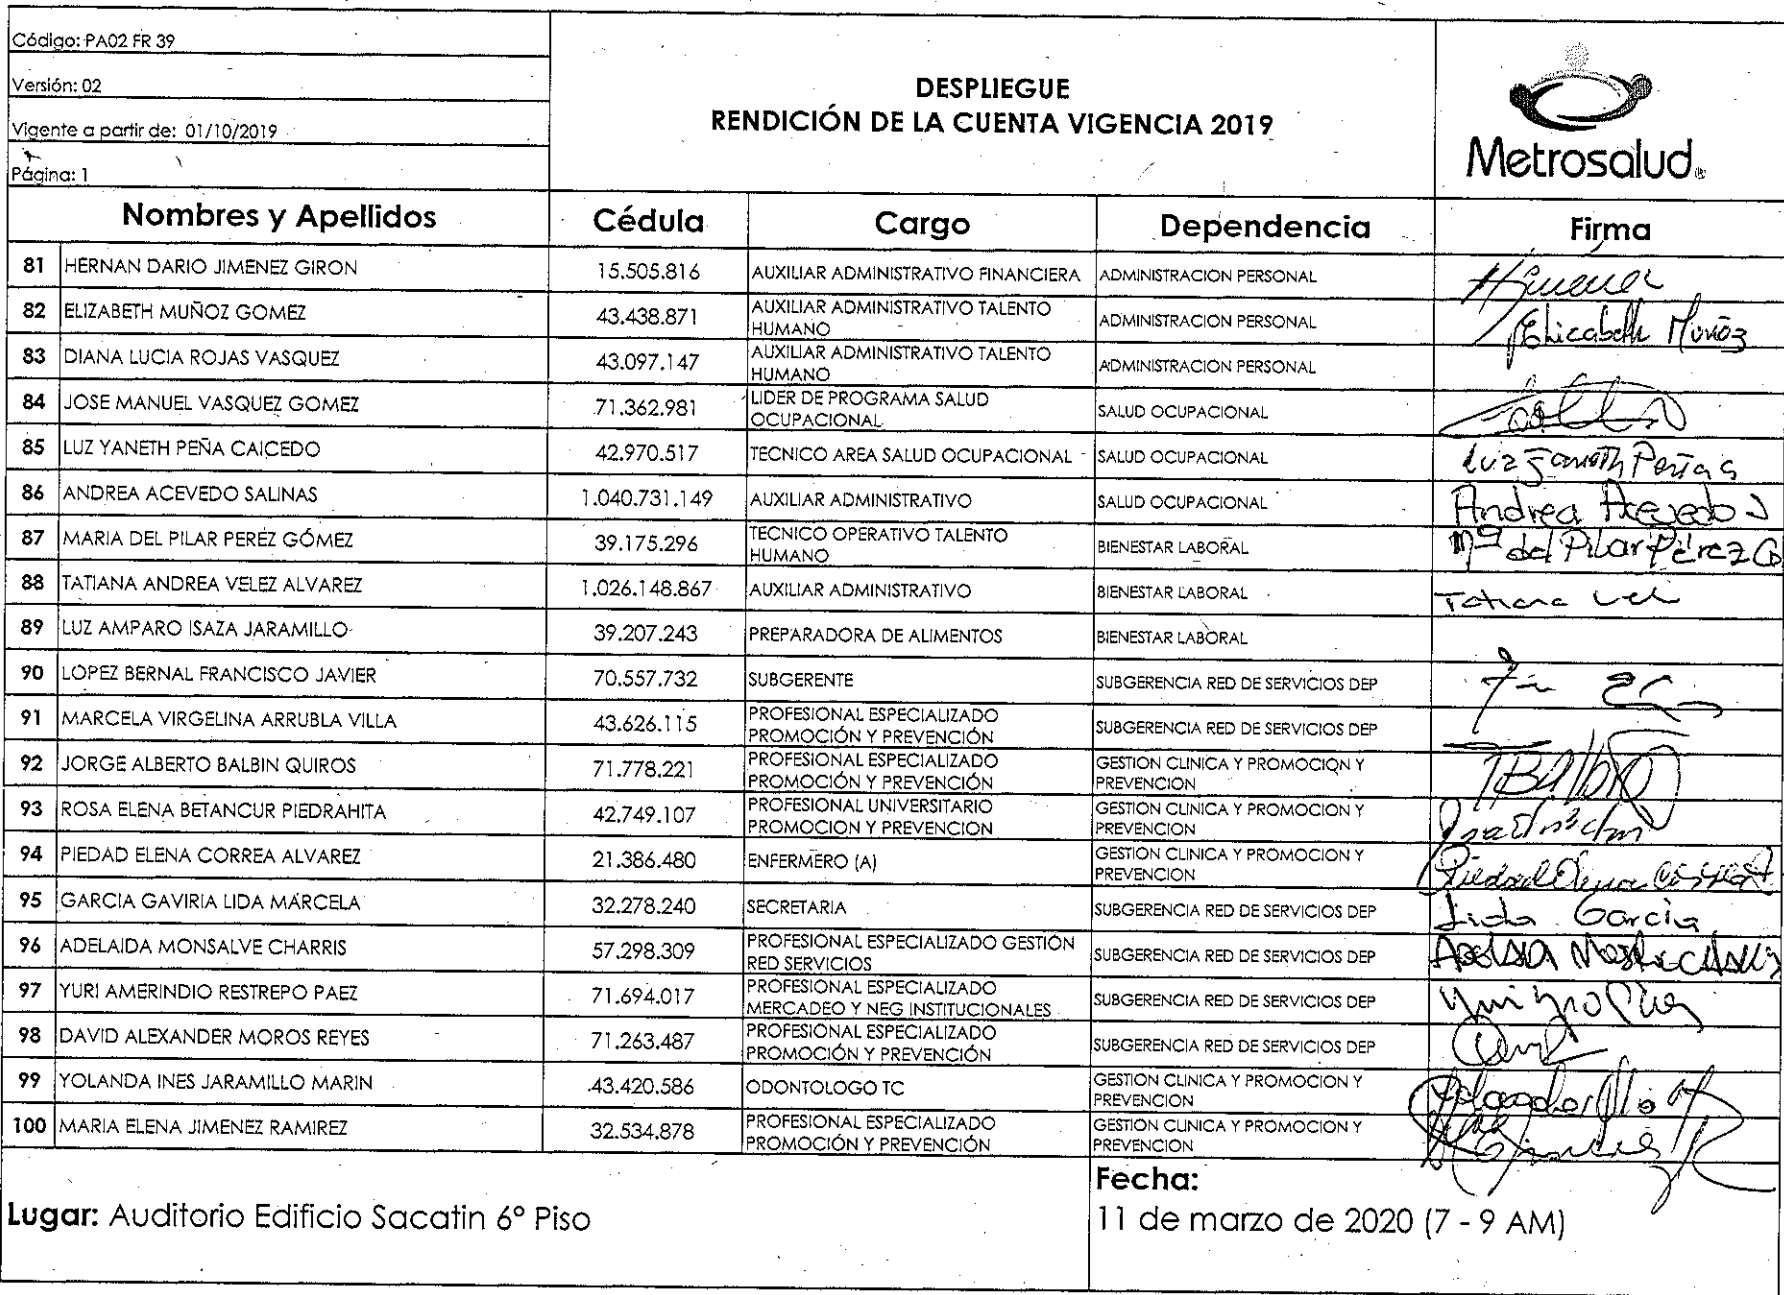 Código: PA02 FR 39
Versión: 02
Vigente a partir de: 01/10/2019
Página: 1
DESPLIEGUE
RENDICIÓN DE LA CUENTA VIGENCIA 2019
Metrosalud®
Nombres y Apellidos Cédula Cargo Dependencia Firma
81 HERNAN DARIO JIMENEZ GIRON 15.505.816 AUXILIAR ADMINISTRATIVO FINANCIERA ADMINISTRACION PERSONAL
82 ELIZABETH MUÑOZ GOMEZ 43.438.871 AUXILIAR ADMINISTRATIVO TALENTO HUMANO ADMINISTRACION PERSONAL Elizabeth Muñoz
83 DIANA LUCIA ROJAS VASQUEZ 43.097.147 AUXILIAR ADMINISTRATIVO TALENTO HUMANO ADMINISTRACION PERSONAL
84 JOSE MANUEL VASQUEZ GOMEZ 71.362.981 LIDER DE PROGRAMA SALUD OCUPACIONAL SALUD OCUPACIONAL
85 LUZ YANETH PEÑA CAICEDO 42.970.517 TECNICO AREA SALUD OCUPACIONAL SALUD OCUPACIONAL
86 ANDREA ACEVEDO SALINAS 1.040.731.149 AUXILIAR ADMINISTRATIVO SALUD OCUPACIONAL Andrea Acevedo S
87 MARIA DEL PILAR PEREZ GÓMEZ 39.175.296 TECNICO OPERATIVO TALENTO HUMANO BIENESTAR LABORAL Mª del Pilar Pérez G
88 TATIANA ANDREA VELEZ ALVAREZ 1.026.148.867 AUXILIAR ADMINISTRATIVO BIENESTAR LABORAL Tatiana
89 LUZ AMPARO ISAZA JARAMILLO 39.207.243 PREPARADORA DE ALIMENTOS BIENESTAR LABORAL
90 LOPEZ BERNAL FRANCISCO JAVIER 70.557.732 SUBGERENTE SUBGERENCIA RED DE SERVICIOS DEP
91 MARCELA VIRGELINA ARRUBLA VILLA 43.626.115 PROFESIONAL ESPECIALIZADO PROMOCIÓN Y PREVENCIÓN SUBGERENCIA RED DE SERVICIOS DEP
92 JORGE ALBERTO BALBIN QUIROS 71.778.221 PROFESIONAL ESPECIALIZADO PROMOCIÓN Y PREVENCIÓN GESTION CLINICA Y PROMOCION Y PREVENCION
93 ROSA ELENA BETANCUR PIEDRAHITA 42.749.107 PROFESIONAL UNIVERSITARIO PROMOCION Y PREVENCION GESTION CLINICA Y PROMOCION Y PREVENCION
94 PIEDAD ELENA CORREA ALVAREZ 21.386.480 ENFERMERO (A) GESTION CLINICA Y PROMOCION Y PREVENCION
95 GARCIA GAVIRIA LIDA MARCELA 32.278.240 SECRETARIA SUBGERENCIA RED DE SERVICIOS DEP Lida Garcia
96 ADELAIDA MONSALVE CHARRIS 57.298.309 PROFESIONAL ESPECIALIZADO GESTIÓN RED SERVICIOS SUBGERENCIA RED DE SERVICIOS DEP
97 YURI AMERINDIO RESTREPO PAEZ 71.694.017 PROFESIONAL ESPECIALIZADO MERCADEO Y NEG INSTITUCIONALES SUBGERENCIA RED DE SERVICIOS DEP
98 DAVID ALEXANDER MOROS REYES 71.263.487 PROFESIONAL ESPECIALIZADO PROMOCIÓN Y PREVENCIÓN SUBGERENCIA RED DE SERVICIOS DEP
99 YOLANDA INES JARAMILLO MARIN 43.420.586 ODONTOLOGO TC GESTION CLINICA Y PROMOCION Y PREVENCION
100 MARIA ELENA JIMENEZ RAMIREZ 32.534.878 PROFESIONAL ESPECIALIZADO PROMOCIÓN Y PREVENCIÓN GESTION CLINICA Y PROMOCION Y PREVENCION
Lugar: Auditorio Edificio Sacatin 6º Piso
Fecha:
11 de marzo de 2020 (7 - 9 AM)